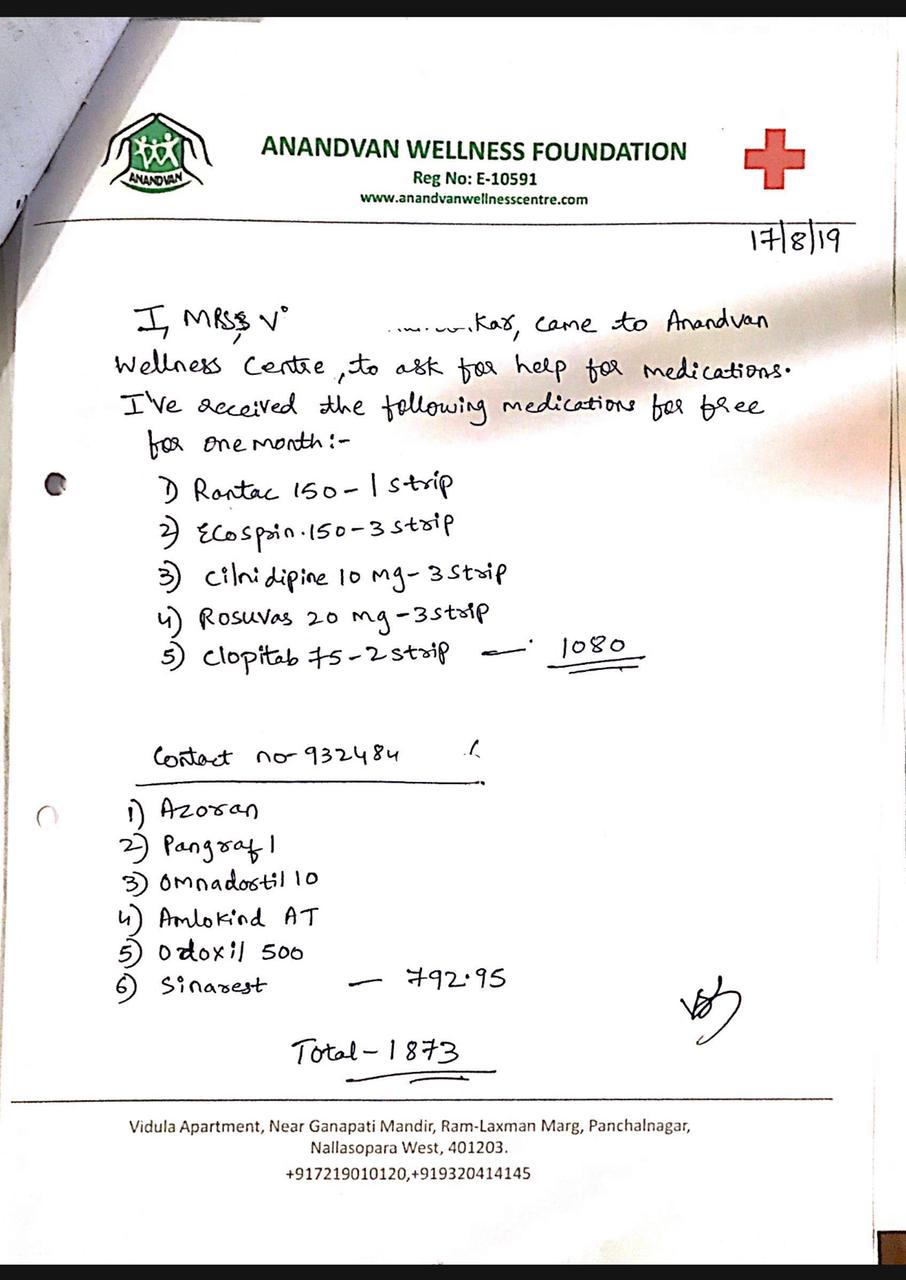 ANANDVAN
ANANDVAN WELLNESS FOUNDATION
Reg No: E-10591
www.anandvanwellnesscentre.com
17/8/19
I, V kar, came to Anandvan
Wellness Centre, to ask for help for medications.
I've received the following medications for free
for one month:-
1) Rantac 150-1 strip
2) Ecosprin.150-3 strip
3) Cilnidipine 10 mg-3 strip
4) Rosuvas 20 mg-3 strip
5) Clopitab 75-2 strip — 1080
Contact no-932484
1) Azoran
2) Pangraf 1
3) Omnadostil 10
4) Amlokind AT
5) Odoxil 500
6) Sinarest — 792.95
Total-1873
Vidula Apartment, Near Ganapati Mandir, Ram-Laxman Marg, Panchalnagar,
Nallasopara West, 401203.
+917219010120,+919320414145